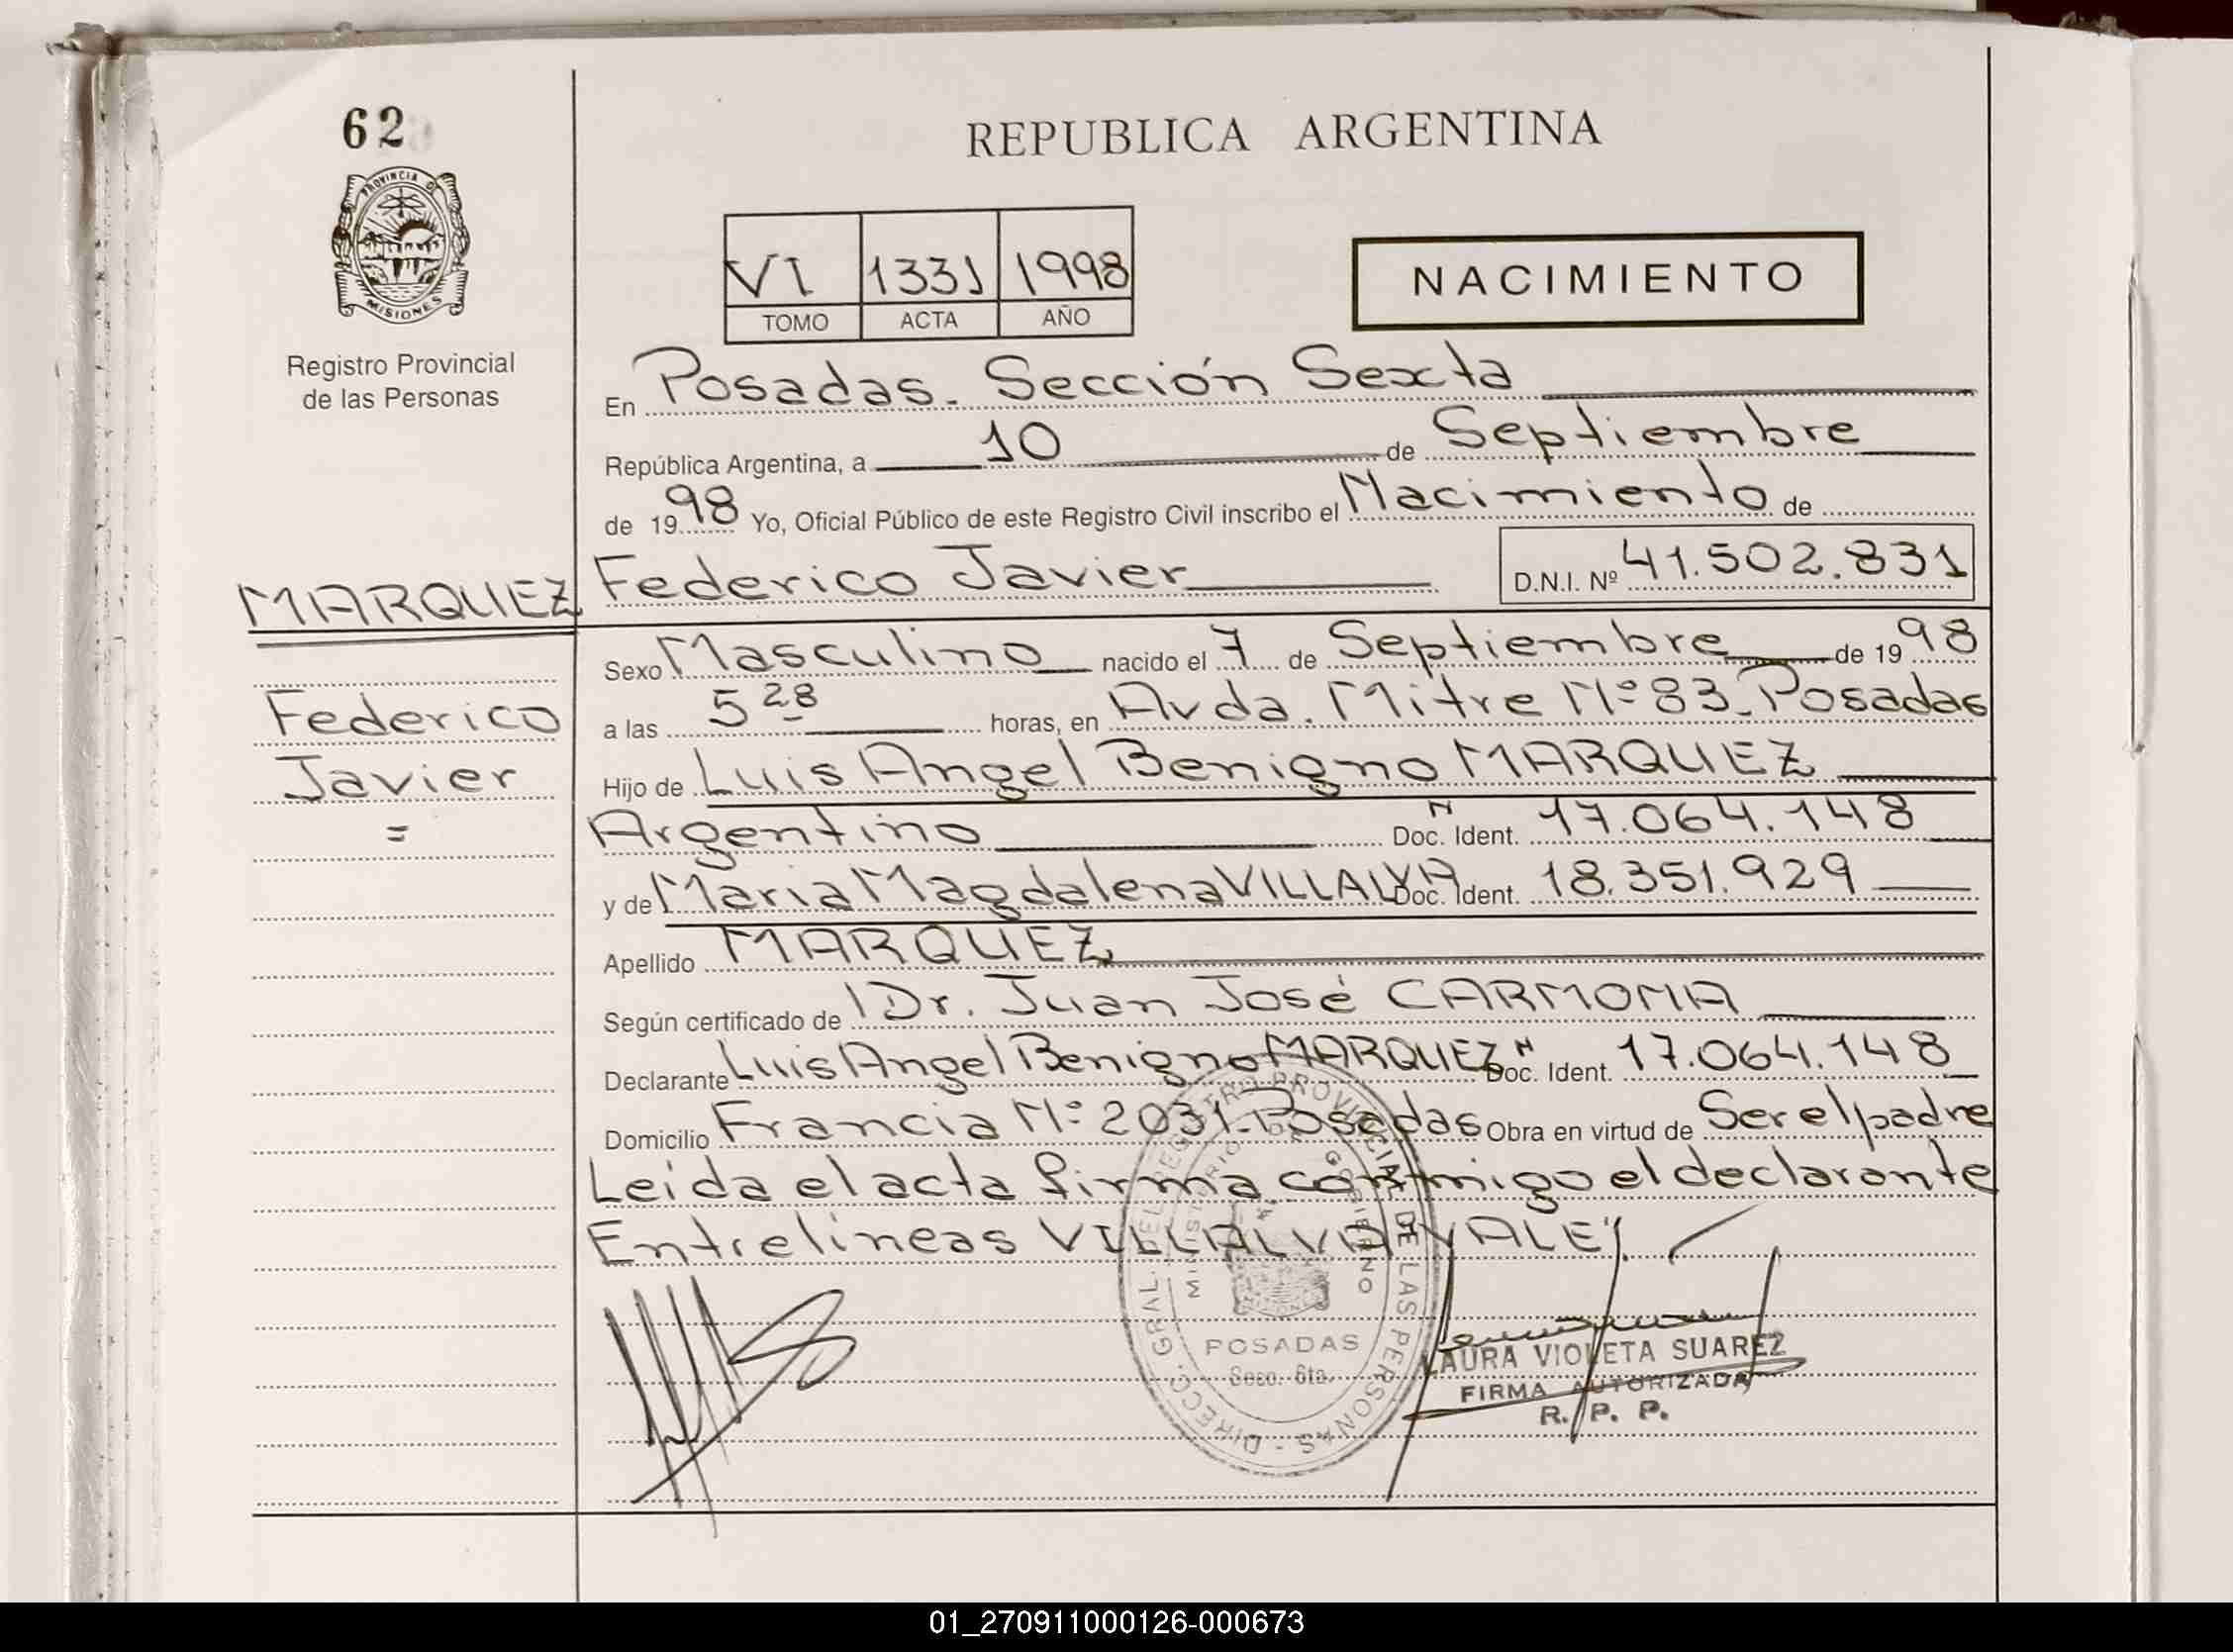 62
PROVINCIA D
MISIONES
Registro Provincial
de las Personas
REPUBLICA ARGENTINA
VI 1331 1998
TOMO ACTA AÑO
NACIMIENTO
En Posadas. Sección Sexta
República Argentina, a 10 de Septiembre
de 1998 Yo, Oficial Público de este Registro Civil inscribo el Nacimiento de
MARQUEZ Federico Javier D.N.I. Nº 41.502.831
Sexo Masculino nacido el 7 de Septiembre de 1998
Federico
Javier
=
a las 5 28 horas, en Avda. Mitre Nº 83. Posadas
Hijo de Luis Angel Benigno MARQUEZ
Argentino Doc. N Ident. 17.064.148
y de Maria Magdalena VILLALVA Doc. Ident. 18.351.929
Apellido MARQUEZ
Según certificado de Dr. Juan José CARMONA
Declarante Luis Angel Benigno MARQUEZ Doc. N Ident. 17.064.148
Domicilio Francia Nº 2031. Posadas Obra en virtud de Ser el padre
Leida el acta firma conmigo el declarante
Entrelineas VILLALVA VALE
DIRECC. GRAL. DEL REGISTRO PROVINCIAL DE LAS PERSONAS
MINISTERIO DE GOBIERNO
POSADAS
Secc. 6ta.
LAURA VIOLETA SUAREZ
FIRMA AUTORIZADA
R. P. P.
01_270911000126-000673